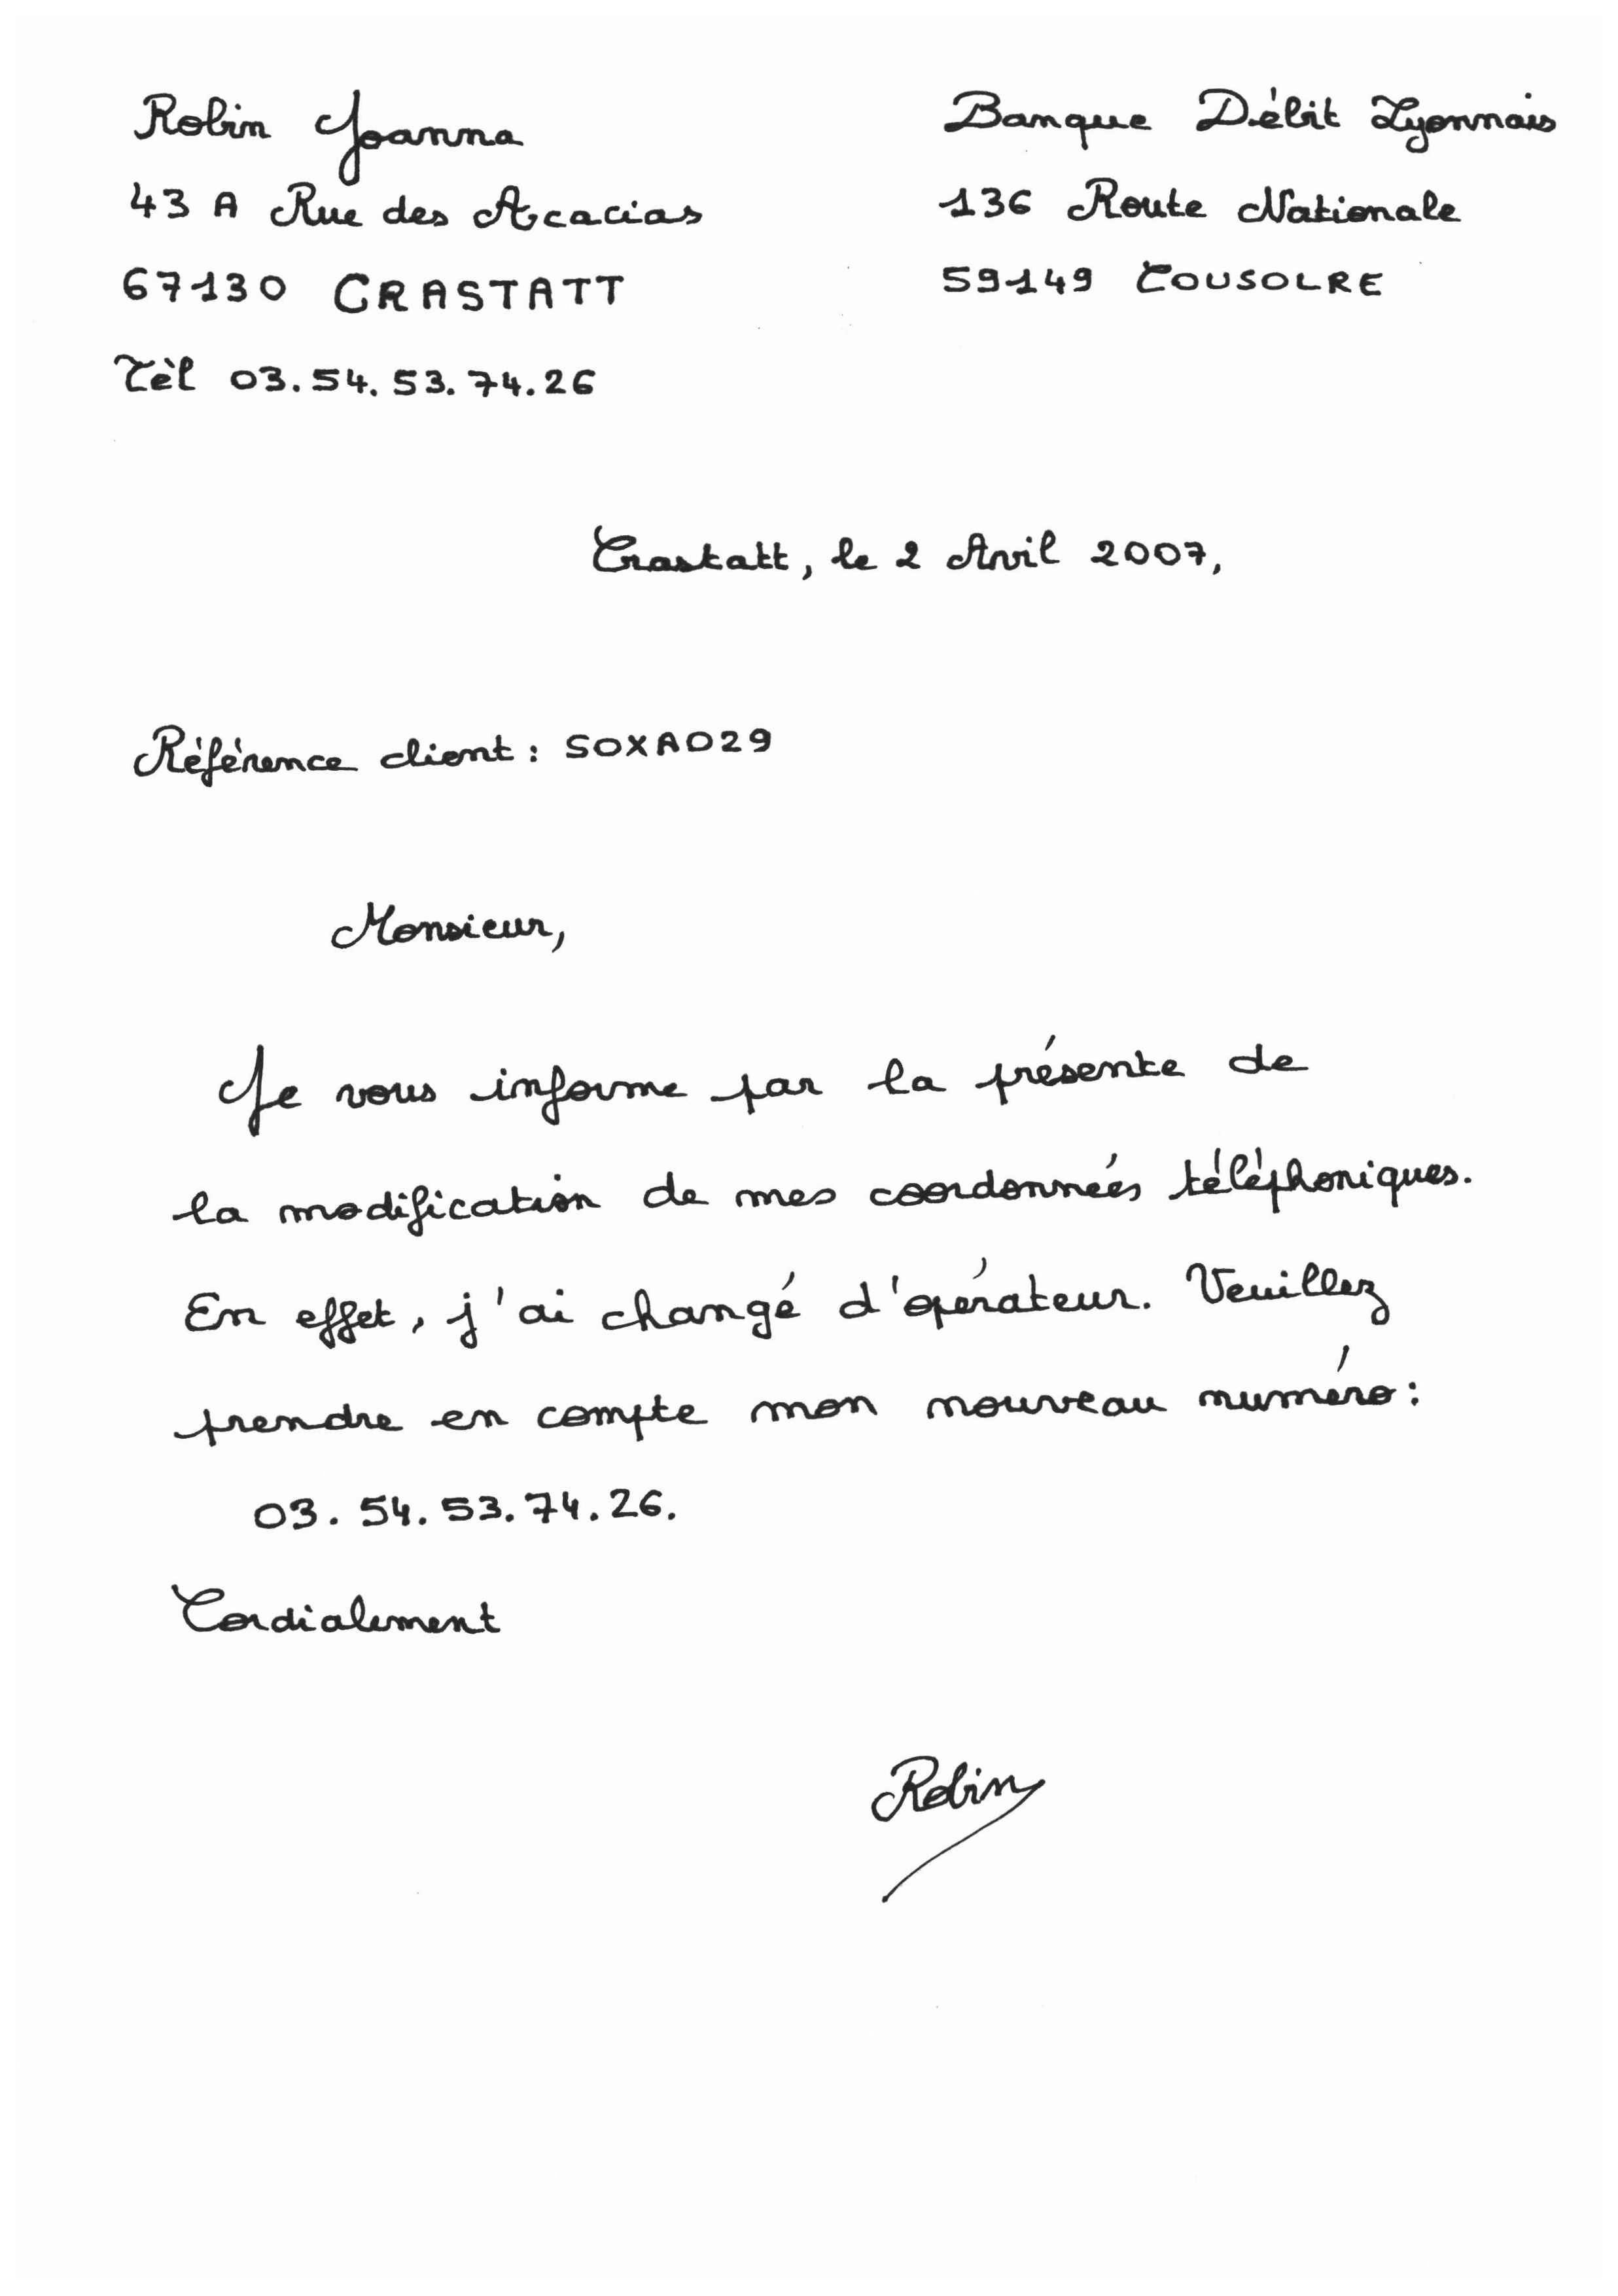 Robin Joanna
43 A Rue des Acacias
67130 CRASTATT
Tél 03.54.53.74.26
Banque Débit Lyonnais
136 Route Nationale
59149 COUSOLRE
Crastatt, le 2 Avril 2007,
Référence client : SOXAO29
Monsieur,
Je vous informe par la présente de
la modification de mes coordonnées téléphoniques.
En effet, j'ai changé d'opérateur. Veuillez
prendre en compte mon nouveau numéro :
03.54.53.74.26.
Cordialement
Robin